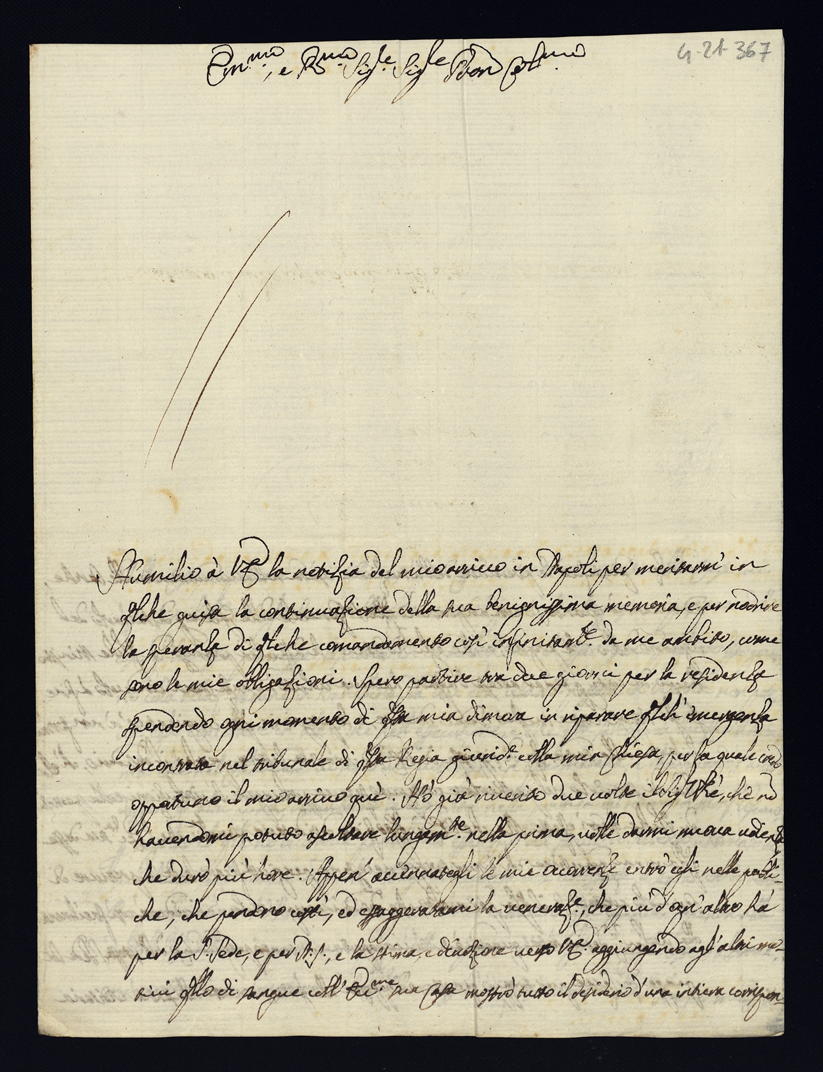 4-21-367
Em.mo, e R.mo Sig.re Sig.re Pron Col.mo
Humilio à V.E. la notizia del mio arrivo in Napoli per meritarmi in
qlche guisa la continuazione della sua benignissima memoria, e per nodrire
la speranza di qlche comandamento così infinitam.te da me ambito, come
sono le mie obligazioni. Spero partire tra due giorni per la residenza
spendendo ogni momento di qsta mia dimora in riparare qlch' emergenza
incontrata nel tribunale di qsta Regia giurid.e colla mia Chiesa, per la quale credo
opportuno il mio arrivo quì. Hò già riverito due volte il Sig.r Vke, che nõ
havendomi potuto ascoltare lungam.te nella prima, volle darmi nuova udienza
che durò più hore. Appen' accennategli le mie occorrenze entrò egli nelle pobli-
che, che pendono costì, ed essaggeratami la veneraz.e, che più d'ogn'altro hà
per la S. Sede, e per N. S., e la stima, e divozione verso V.E. aggiungendo agl'altri mo-
tivi qllo di sangue coll' Ecc.ma sua Casa mostrò tutto il desiderio d'una intiera corrispon